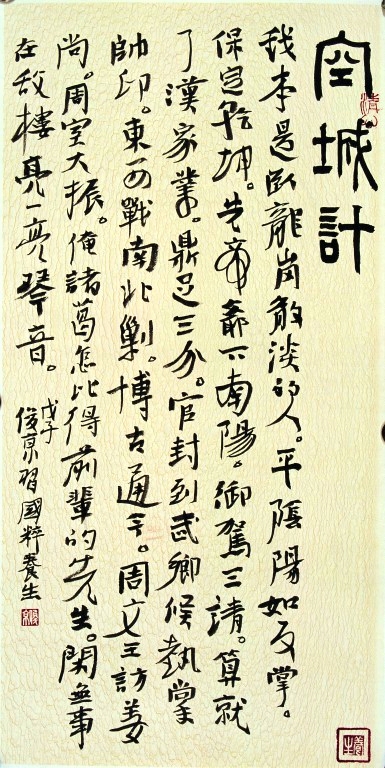 空城計
我本是臥龍崗散淡的人。平陰陽如反掌。
保定乾坤。先帝爺下南陽。御駕三請。算就
了漢家業。鼎足三分。官封到武鄉侯執掌
帥印。東西戰南北剿。博古通今。周文王訪姜
尚。周室大振。俺諸葛怎比得前輩的先生。閑無事
在敵樓亮一亮琴音。
戊子
俊京習國粹養生